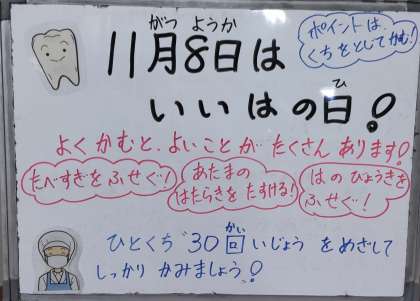 11月8日は
がつ ようか
ポイントは、
くちをとじてかむ!
いいはの日!
ひ
よくかむと、よいことがたくさんあります!
たべすぎをふせぐ!
あたまの
はたらきをたすける!
はのびょうきを
ふせぐ!
ひとくち"30回いじょうをめざして
かい
しっかりかみましょう!